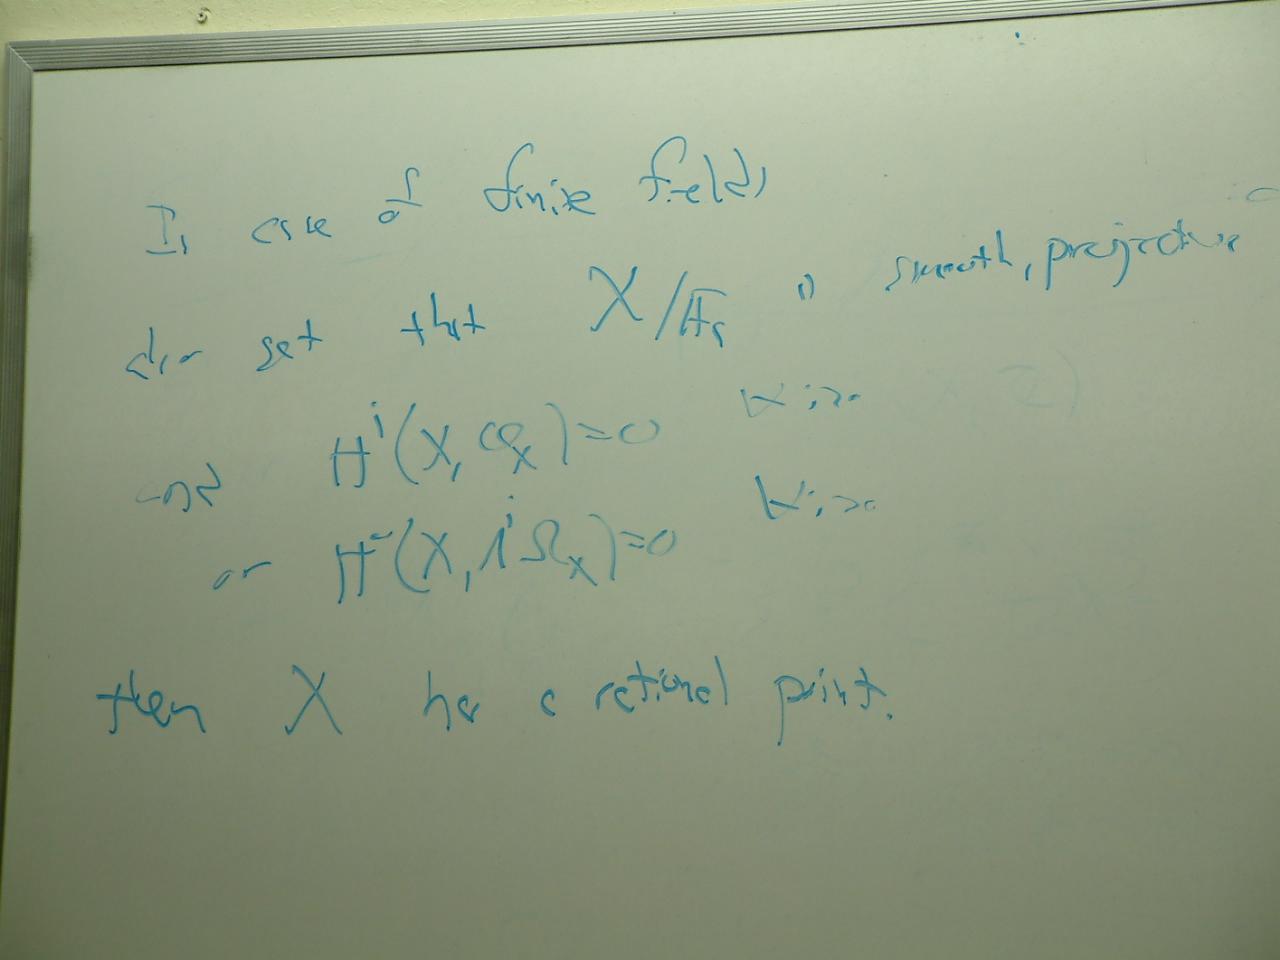 In case of finite fields
also get that X/𝔽q is smooth, projective
and Hⁱ(X, 𝒪_X)=0 ∀ i>0
or H⁰(X, Λⁱ Ω_X)=0 ∀ i>0
then X has a rational point.